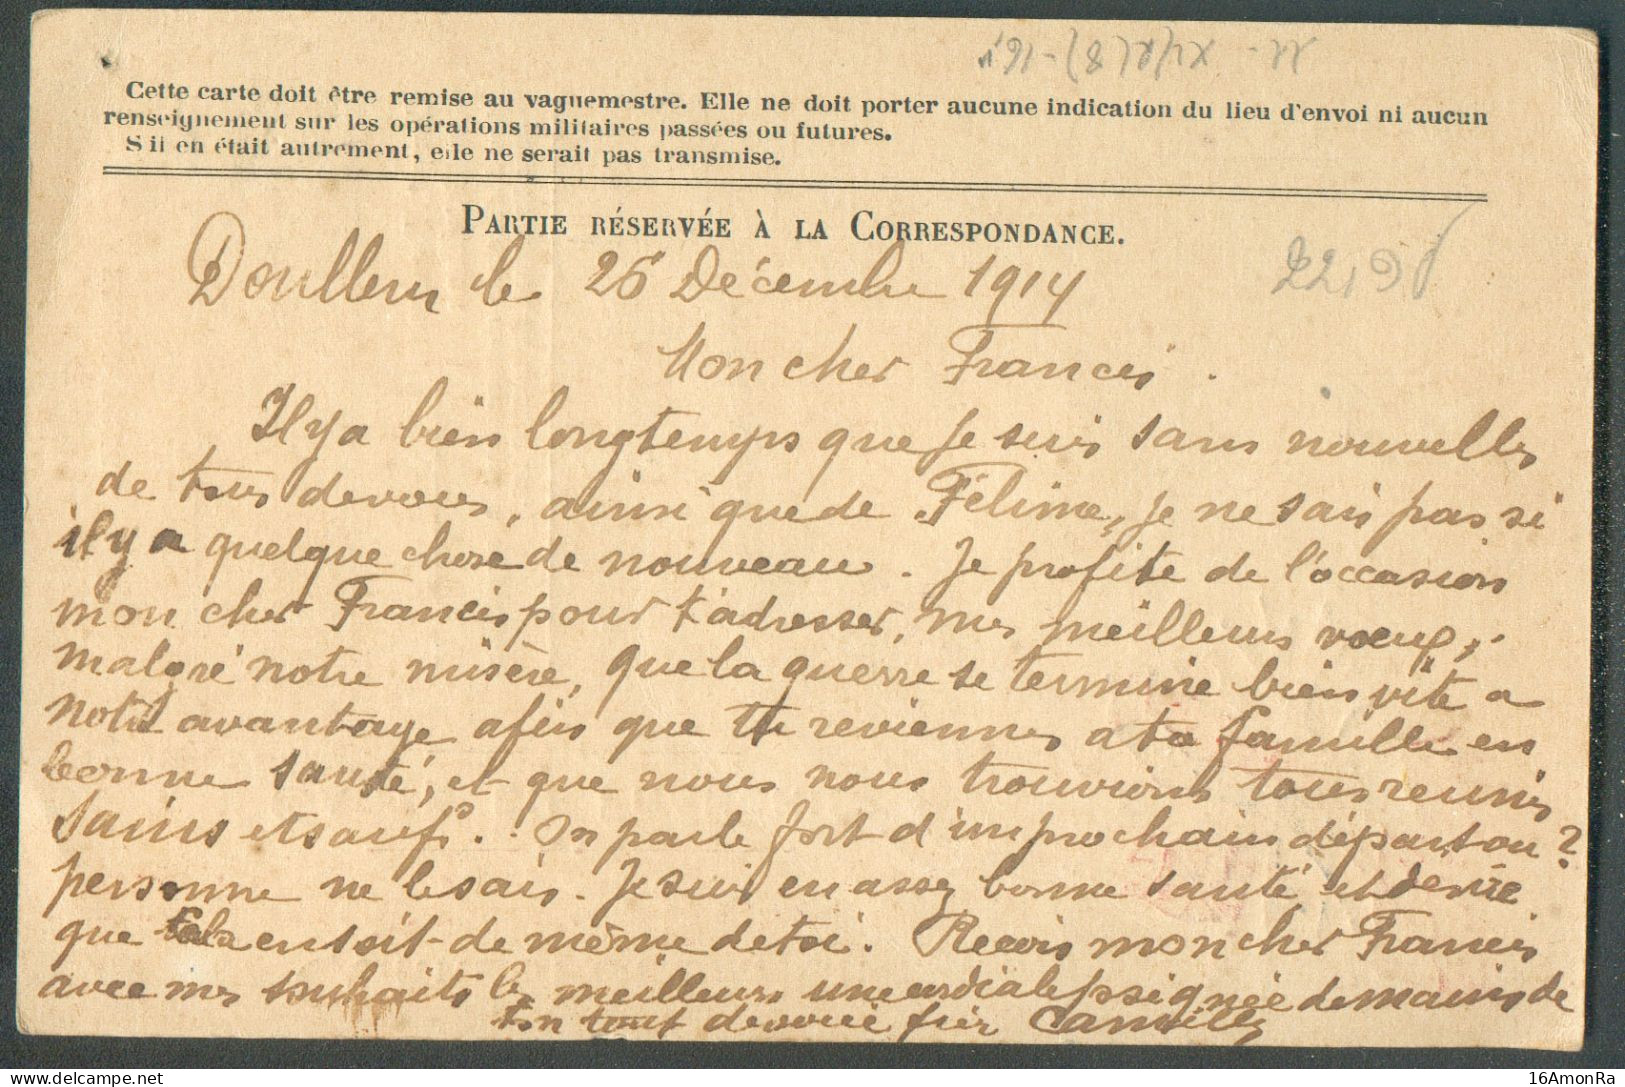 Cette carte doit être remise au vaguemestre. Elle ne doit porter aucune indication du lieu d'envoi ni aucun
renseignement sur les opérations militaires passées ou futures.
S'il en était autrement, elle ne serait pas transmise.
PARTIE RÉSERVÉE À LA CORRESPONDANCE.
Doullens le 26 Décembre 1914
Mon cher Francis.
Il y a bien longtemps que je suis sans nouvelles
de tous de vous, ainsi que de Féline, je ne sais pas si
il y a quelque chose de nouveau. Je profite de l'occasion
mon cher Francis pour t'adresser, mes meilleurs vœux,
malgré notre misère, que la guerre se termine bien vite a
notre avantage afin que tu reviennes a ta famille en
bonne santé, et que nous nous trouvions tous reunis
sains et saufs. On parle fort d'un prochain départ ou ?
personne ne le sais. Je suis en assez bonne santé et désire
que cela en soit de même de toi. Recois mon cher Francis
avec mes souhaits les meilleurs une cordiale poignée de mains de
ton tout devoué frère Camille
16AmonRa